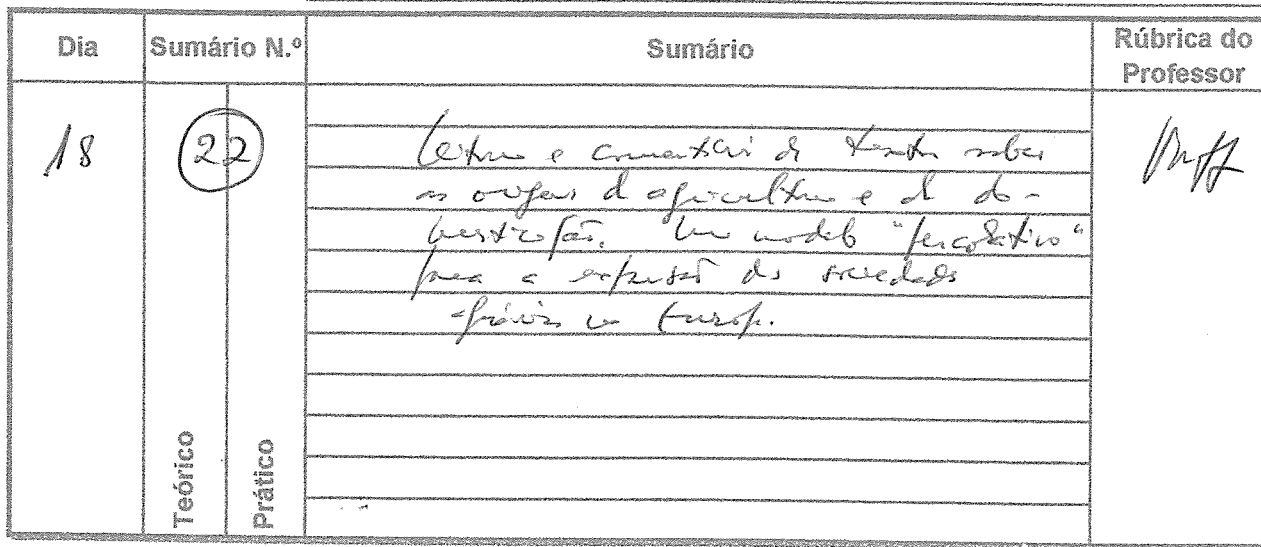 Dia Sumário N.º Sumário Rúbrica do Professor
18 22
Leitura e comentário de textos sobre
as origens da agricultura e da do-
mesticação. Um modelo "percolativo"
para a expansão das sociedades
agrárias na Europa.
Teórico
Prático